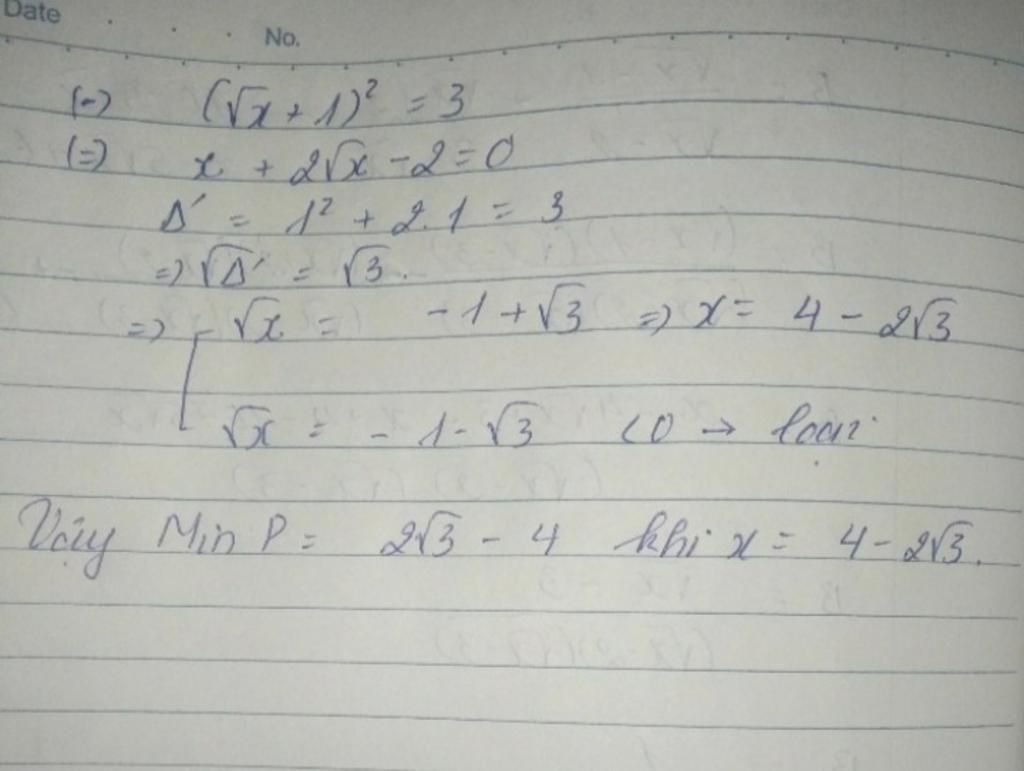 Date
No.
(=) (√x + 1)² = 3
(=) x + 2√x - 2 = 0
Δ' = 1² + 2.1 = 3
=) √Δ' = √3.
=) √x = -1 + √3 =) x = 4 - 2√3
√x = -1 - √3 <0 → loại
Vậy Min P = 2√3 - 4 khi x = 4 - 2√3.